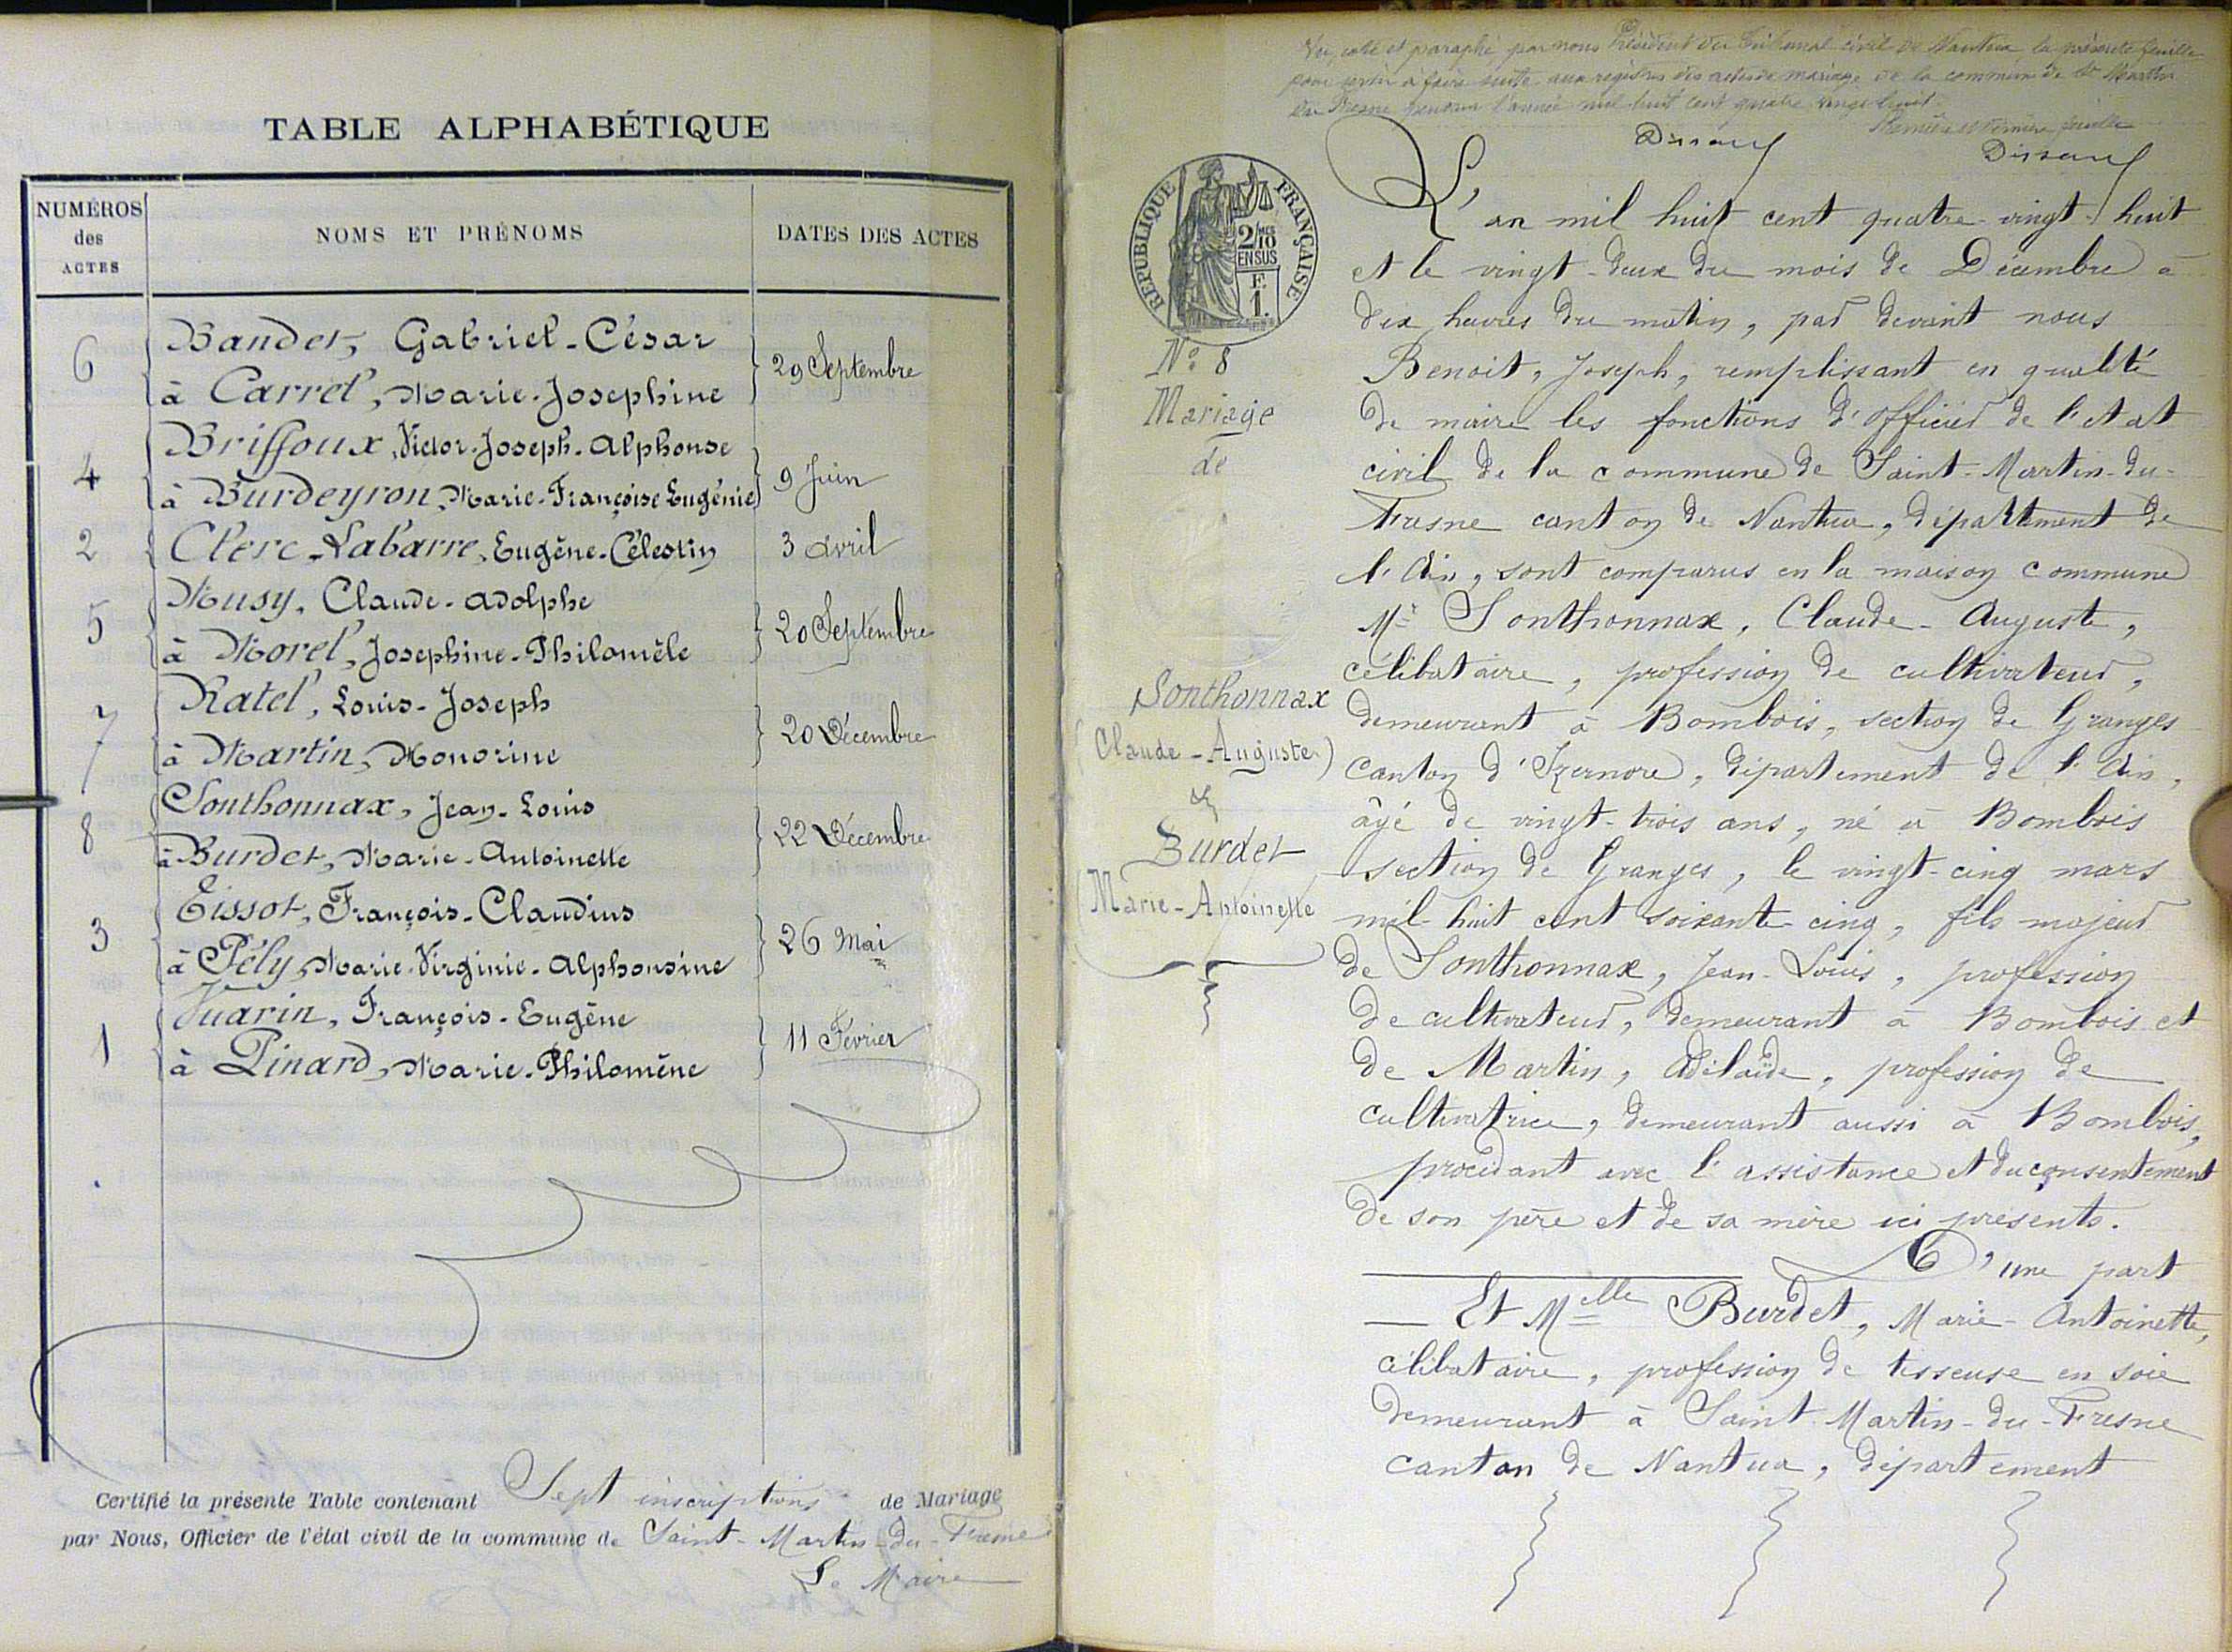 TABLE ALPHABÉTIQUE
NUMÉROS
des
ACTES
NOMS ET PRÉNOMS
DATES DES ACTES
6
Baudet, Gabriel-César
à Carrel, Marie-Josephine
29 Septembre
4
Briffoux, Victor-Joseph-Alphonse
à Burdeyron, Marie-Françoise Eugénie
9 Juin
2
Clerc-Labarre, Eugène-Célestin
3 Avril
5
Musy, Claude-Adolphe
à Morel, Josephine-Philomèle
20 Septembre
7
Ratel, Louis-Joseph
à Martin, Honorine
20 Décembre
8
Sonthonnax, Jean-Louis
à Burdet, Marie-Antoinette
22 Décembre
3
Tissot, François-Claudius
à Pély, Marie-Virginie-Alphonsine
26 Mai
1
Vuarin, François-Eugène
à Pinard, Marie-Philomène
11 Février
Certifié la présente Table contenant Sept inscriptions de Mariage
par Nous, Officier de l'état civil de la commune de Saint-Martin-du-Fresne
Le Maire
Vu, coté et paraphé par nous Président du Tribunal civil de Nantua la présente feuille
pour servir à faire suite aux registres des actes de mariage de la commune de St Martin
du Fresne pendant l'année mil huit cent quatre vingt huit.
Première et dernière feuille
RÉPUBLIQUE FRANÇAISE
2/10
EN SUS
F.
1.
N° 8
Mariage
de
Sonthonnax
(Claude-Auguste)
&
Burdet
(Marie-Antoinette
L'an mil huit cent quatre-vingt-huit
et le vingt-deux du mois de Décembre à
dix heures du matin, par devant nous
Benoit, Joseph, remplissant en qualité
de maire les fonctions d'officier de l'etat
civil de la commune de Saint-Martin-du-
Fresne canton de Nantua, département de
l'Ain, sont comparus en la maison commune
Mr Sonthonnax, Claude-Auguste,
célibataire, profession de cultivateur,
demeurant à Bombois, section de Granges
canton d'Izernore, département de l'Ain,
âgé de vingt-trois ans, né à Bombois
section de Granges, le vingt-cinq mars
mil huit cent soixante cinq, fils majeur
de Sonthonnax, Jean-Louis, profession
de cultivateur, demeurant à Bombois et
de Martin, Adélaïde, profession de
cultivatrice, demeurant aussi à Bombois,
procédant avec l'assistance et du consentement
de son père et de sa mère ici présents.
D'une part
Et Melle Burdet, Marie-Antoinette,
célibataire, profession de tisseuse en soie
demeurant à Saint-Martin-du-Fresne
canton de Nantua, département